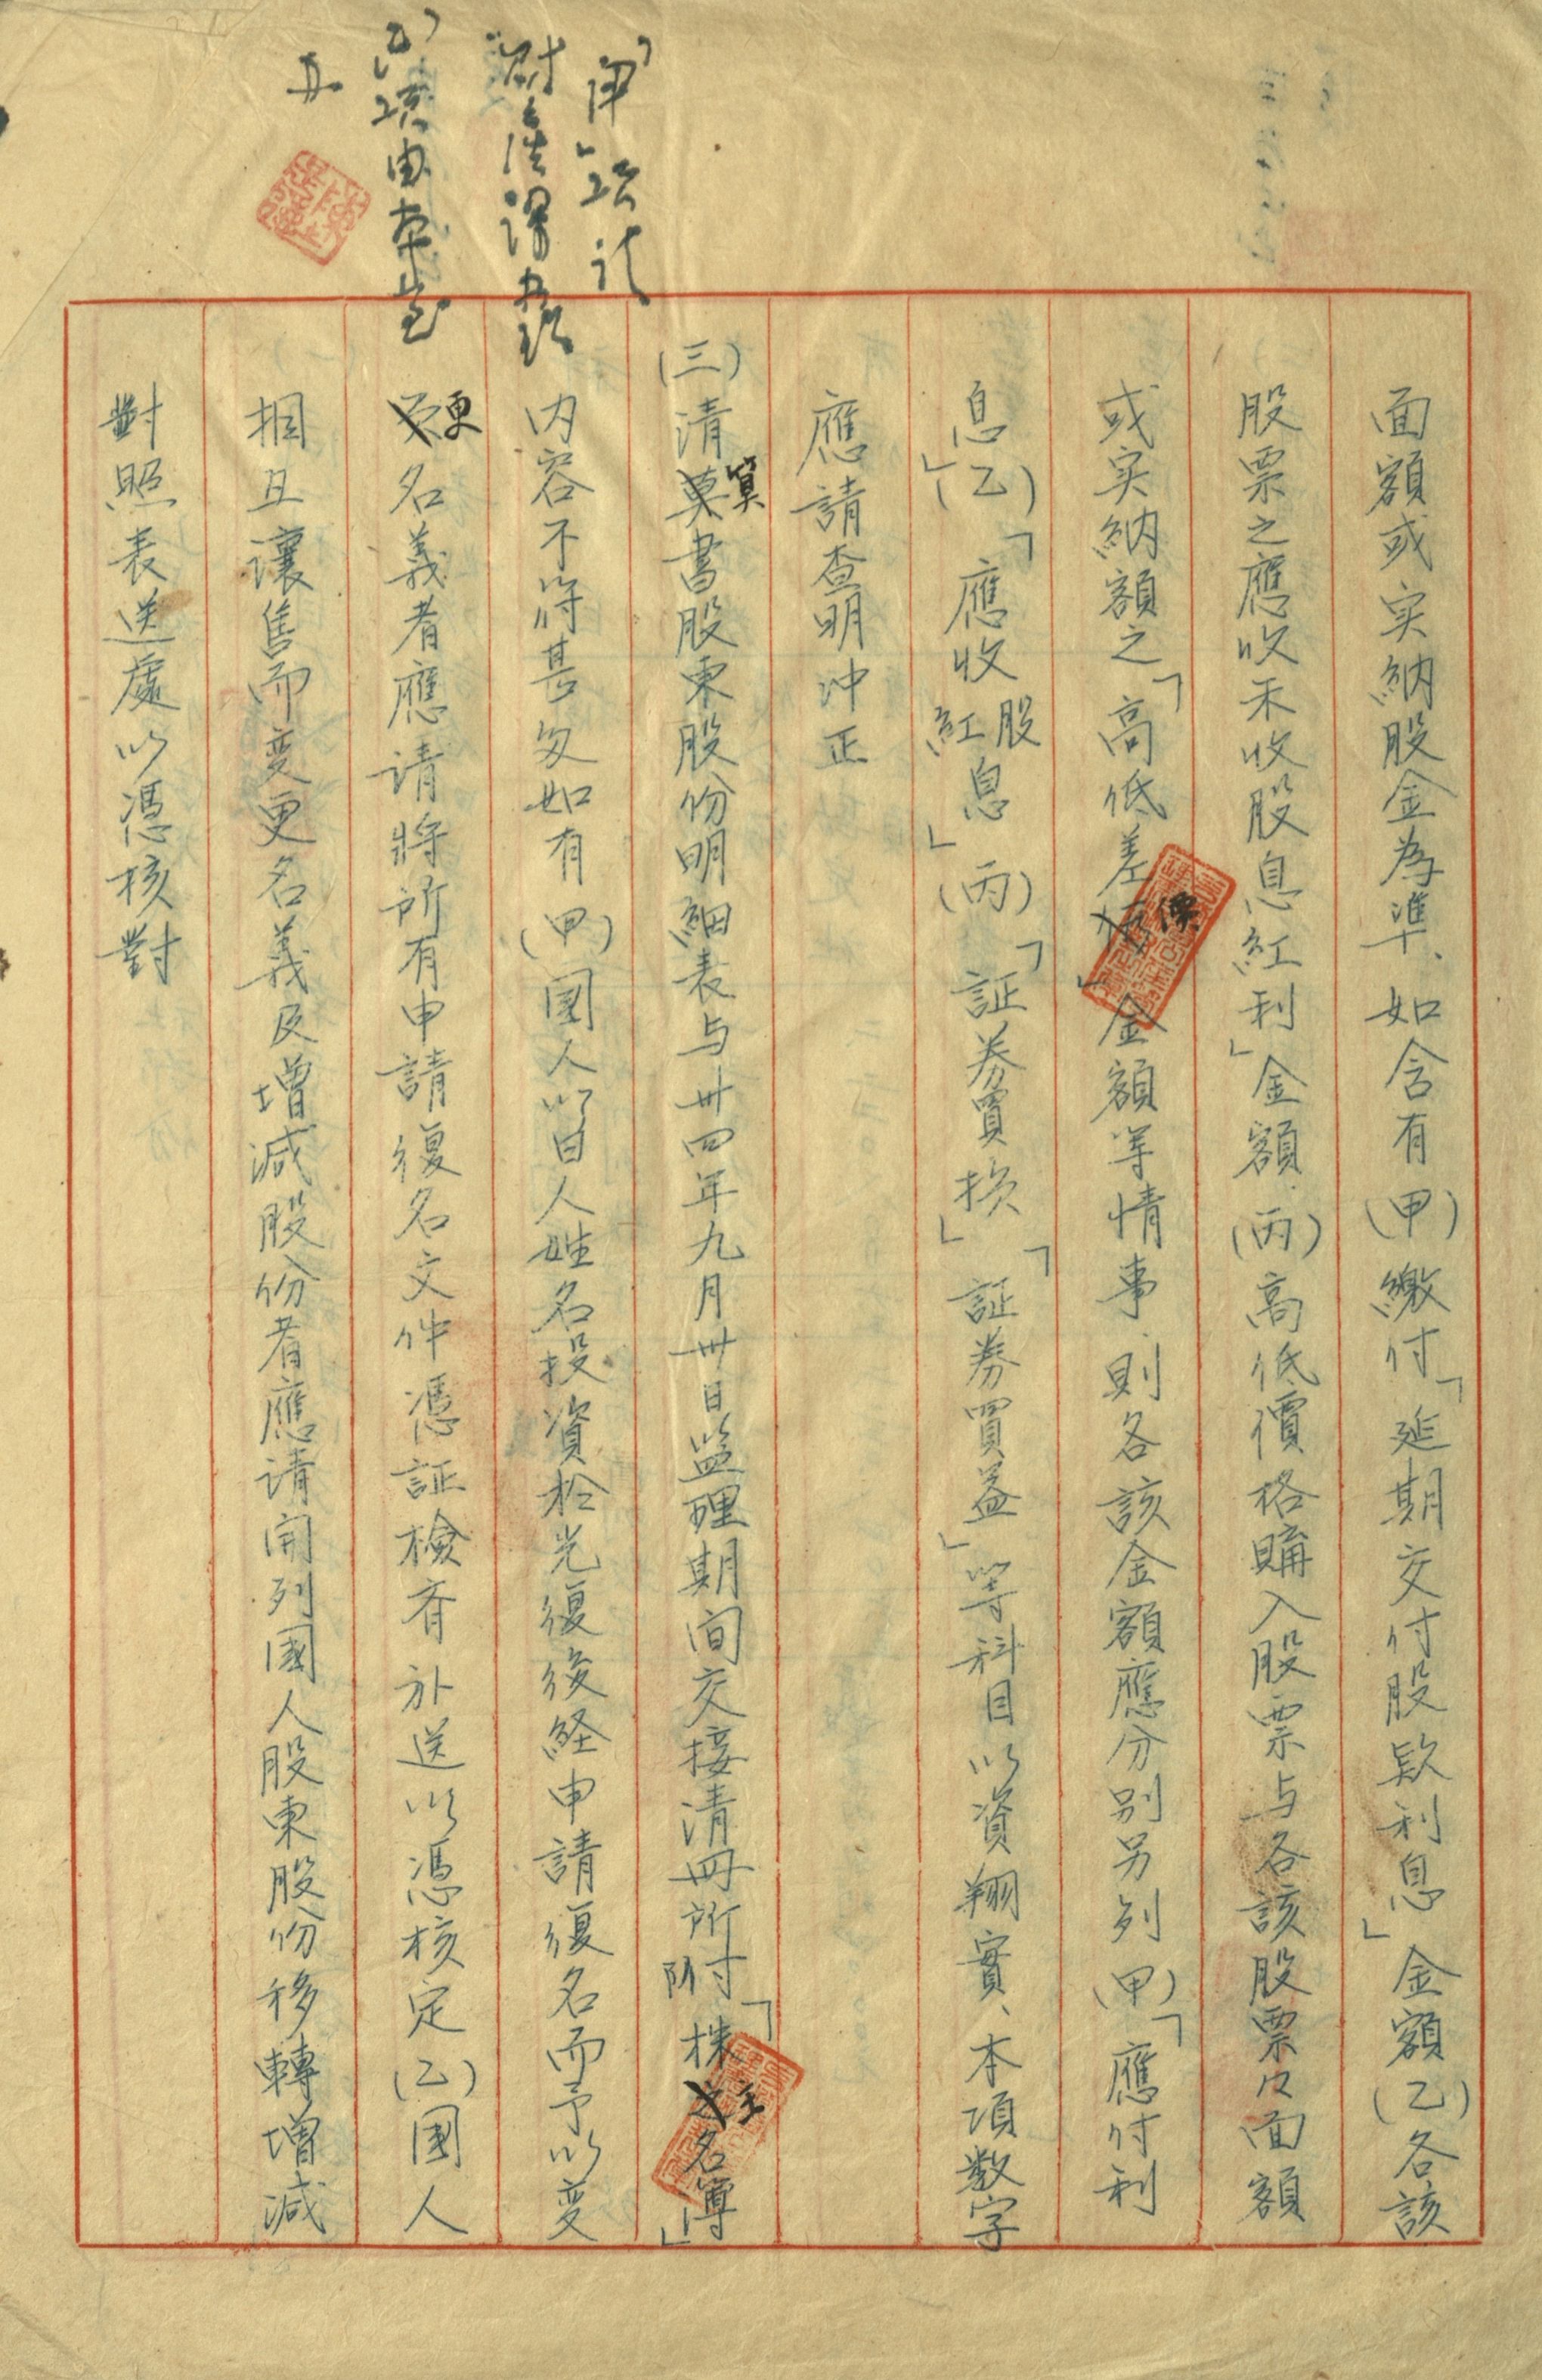 面額或实納股金為準、如含有(甲)繳付「延期交付股款利息」金額(乙)各該
股票之應收未收股息紅利」金額(丙)高低價格購入股票与各該股票々面額
或实納額之「高低差價」金額等情事、則各該金額應分別另列(甲)「應付利
息」(乙)「應收股紅息」(丙)「証券買損」「証券買益」等科目以資翔實、本項数字
應請查明沖正
(三)清算書股東股份明細表与卅四年九月卅日监理期间交接清冊所附「株主名簿」
内容不符甚多如有(甲)國人以日人姓名投資於光復後経申請復名而予以変
更名義者應请將所有申請復名文件憑証檢斉补送以憑核定(乙)國人
相互讓售而変更名義及增減股份者應请開列國人股東股份移轉增減
對照表送處以憑核對